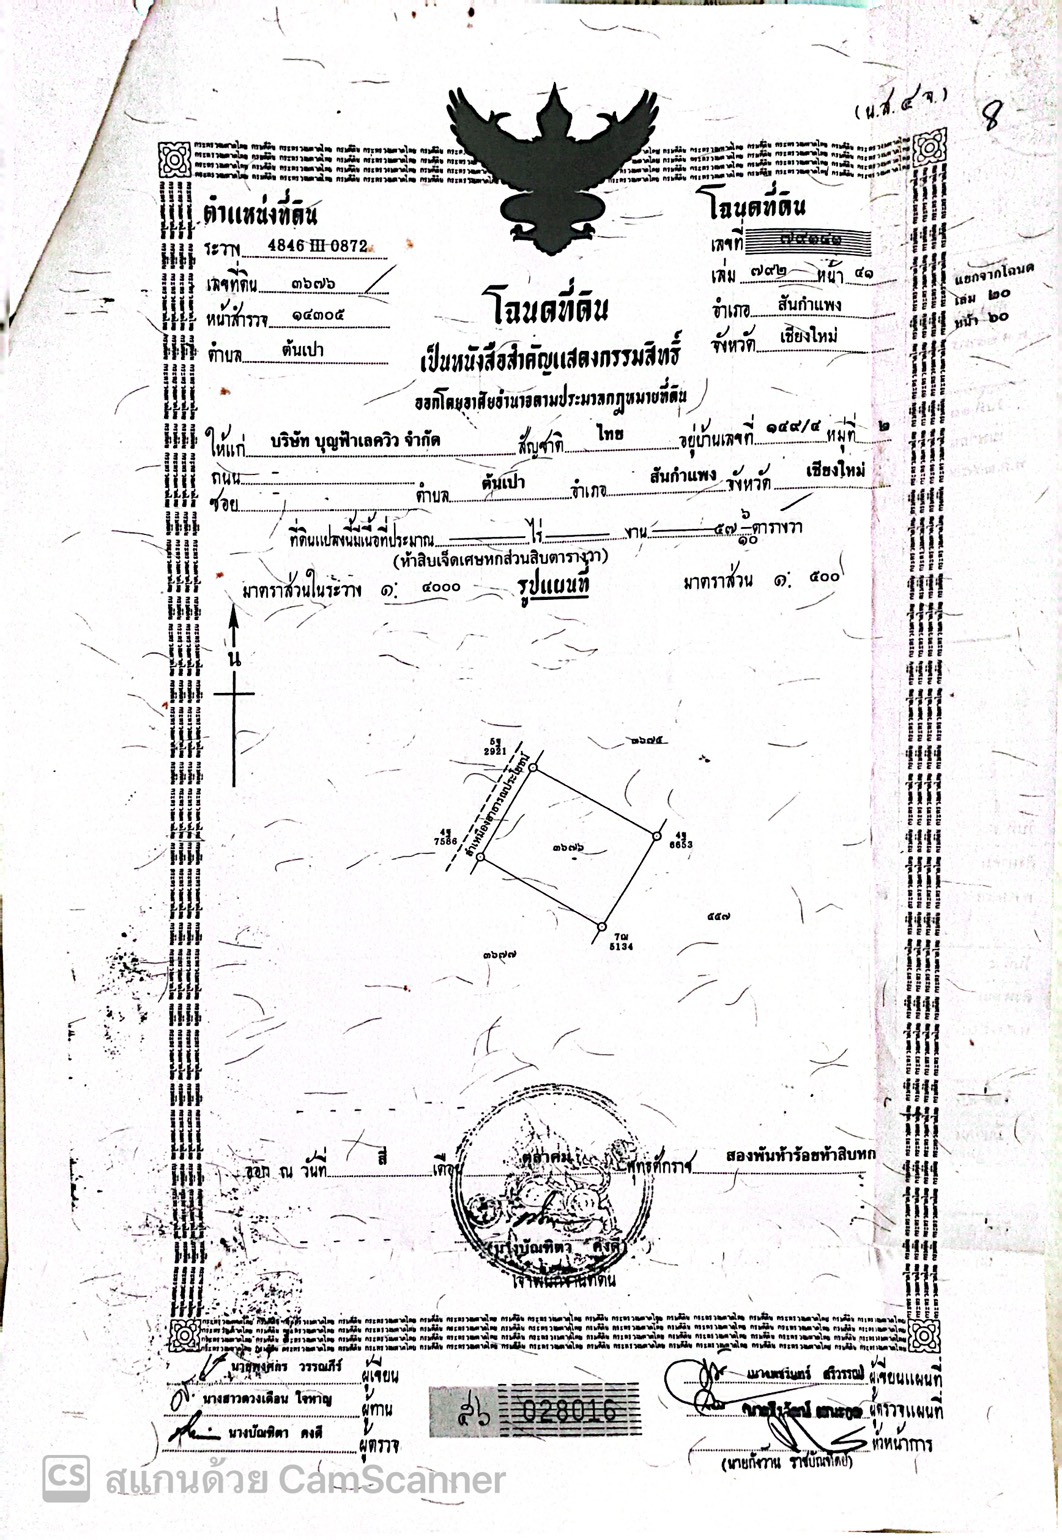 (น.ส. ๔ จ.)
8
ตำแหน่งที่ดิน
ระวาง 4846 III 0872
เลขที่ดิน ๓๖๗๖
หน้าสำรวจ ๑๔๓๐๕
ตำบล ต้นเปา
โฉนดที่ดิน
เลขที่ ๗๙๑๔๑
เล่ม ๗๙๒ หน้า ๔๑
อำเภอ สันกำแพง
จังหวัด เชียงใหม่
แยกจากโฉนด
เล่ม ๒๐
หน้า ๖๐
โฉนดที่ดิน
เป็นหนังสือสำคัญแสดงกรรมสิทธิ์
ออกโดยอาศัยอำนาจตามประมวลกฎหมายที่ดิน
ให้แก่ บริษัท บุญฟ้าเลควิว จำกัด สัญชาติ ไทย อยู่บ้านเลขที่ ๑๔๙/๔ หมู่ที่ ๒
ถนน -
ซอย - ตำบล ต้นเปา อำเภอ สันกำแพง จังหวัด เชียงใหม่
ที่ดินแปลงนี้มีเนื้อที่ประมาณ ไร่ งาน ๕๗ ๖/๑๐ ตารางวา
(ห้าสิบเจ็ดเศษหกส่วนสิบตารางวา)
มาตราส่วนในระวาง ๑: ๔๐๐๐ รูปแผนที่ มาตราส่วน ๑: ๕๐๐
น
5ฐ
2921
๓๖๗๕
ลำเหมืองสาธารณประโยชน์
4ฐ
7586
๓๖๗๖
4ฐ
6653
๕๕๗
7ณ
5134
๓๖๗๗
ออก ณ วันที่ สี่ เดือน ตุลาคม พุทธศักราช สองพันห้าร้อยห้าสิบหก
(นางบัณฑิตา คงดี)
เจ้าพนักงานที่ดิน
วรรณภีร์ ผู้เขียน
นางสาวดวงเดือน ใจหาญ ผู้ทาน
นางบัณฑิตา คงดี ผู้ตรวจ
๕๖ 028016
ผู้เขียนแผนที่
ผู้ตรวจแผนที่
หัวหน้าการ
(นายกังวาน ราชบัณฑิตย์)
CS สแกนด้วย CamScanner